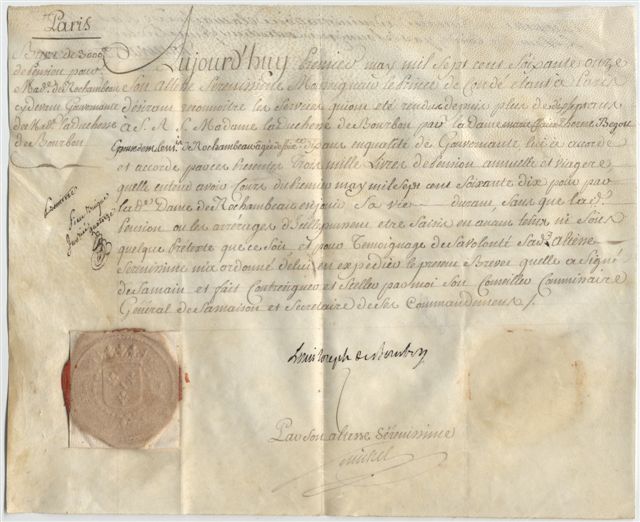 Paris
Brevet de 3000#
de Pension pour
Made. de Rochambeau
cydevant Gouvernante
de Made. la Duchesse
de Bourbon
Aujourd'huy Premier may mil sept cens soixante onze
Son altesse Serenissime Monseigneur le Prince de Condé étant à Paris
désirant reconnoitre les services qui ont été rendus depuis plus de
à S. A. S. Madame la Duchesse de Bourbon par la Dame marie claire therese Begon
Epouse de Rochambeau agée de ans en qualité de Gouvernante, lui a accordé
et accorde par ces Presentes Trois mille Livres de Pension annuelle et viagere
quelle entend avoir cours du Premier may mil sept cens soixante dix pour par
lad. Dame de Rochambeau en jouir sa vie durant sans que lad.
Pension ou les arrerages d'Icelle puissent etre saisis en aucun tems ni sous
quelque Pretexte que ce soit et pour Temoignage de sa volonté Sad. altesse
Serenissime m'a ordonné de lui en expedier le present Brevet quelle a signé
de sa main et fait Contresigner et Sceller par moi son Conseiller Commissaire
General de sa maison et Secretaire de ses Commandemens /.
Louis Joseph de Bourbon
Par Son altesse Sérénissime